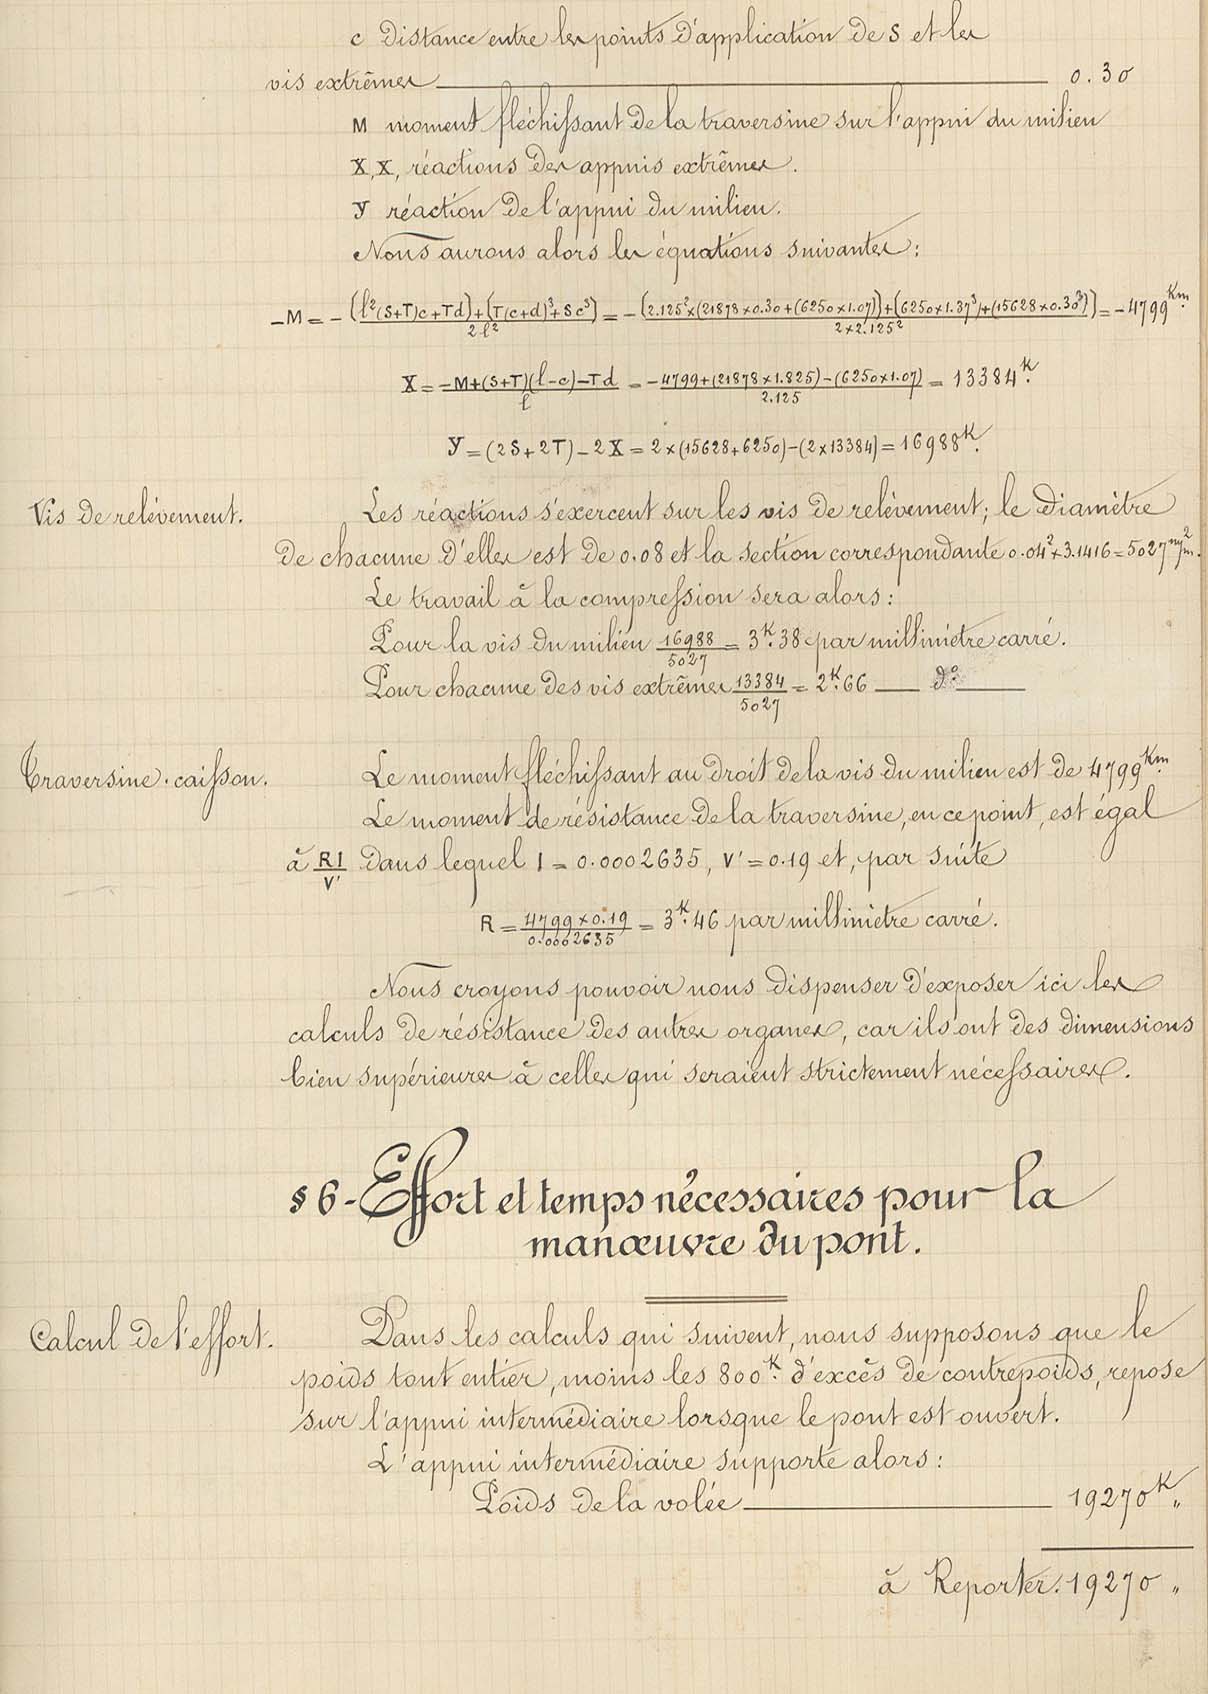 c distance entre les points d'application de S et les
vis extrêmes ——— 0.30
M moment fléchissant de la traversine sur l'appui du milieu
X, X, réactions des appuis extrêmes.
Y réaction de l'appui du milieu.
Nous aurons alors les équations suivantes:
-M = - (l²(S+T)c+Td)+(T(c+d)³+Sc³) / 2l² = - (2.125²×(21878×0.30+(6250×1.07))+(6250×1.37³)+(15628×0.30³)) / 2×2.125² = -4799Km
X = -M+(S+T)(l-c)-Td / l = -4799+(21878×1.825)-(6250×1.07) / 2.125 = 13384K.
Y = (2S+2T)-2X = 2×(15628+6250)-(2×13384) = 16988K.
Vis de relèvement. Les réactions s'exercent sur les vis de relèvement; le diamètre
de chacune d'elles est de 0.08 et la section correspondante 0.04²×3.1416=5027m/m².
Le travail à la compression sera alors:
Pour la vis du milieu 16988/5027 = 3K.38 par millimètre carré.
Pour chacune des vis extrêmes 13384/5027 = 2K.66 — d° —
Traversine-caisson. Le moment fléchissant au droit de la vis du milieu est de 4799Km.
Le moment de résistance de la traversine, en ce point, est égal
à RI/V' dans lequel I = 0.0002635, V' = 0.19 et, par suite
R = 4799×0.19 / 0.0002635 = 3K.46 par millimètre carré.
Nous croyons pouvoir nous dispenser d'exposer ici les
calculs de résistance des autres organes, car ils ont des dimensions
bien supérieures à celles qui seraient strictement nécessaires.
§ 6 - Effort et temps nécessaires pour la
manœuvre du pont.
Calcul de l'effort. Dans les calculs qui suivent, nous supposons que le
poids tout entier, moins les 800K. d'excès de contrepoids, repose
sur l'appui intermédiaire lorsque le pont est ouvert.
L'appui intermédiaire supporte alors:
Poids de la volée ——— 19270K.„
à Reporter. 19270 „